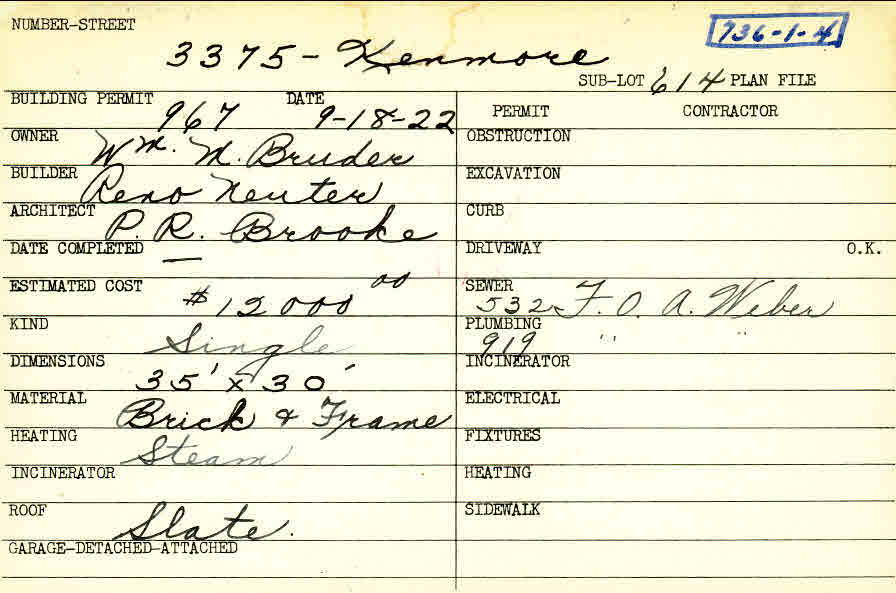 NUMBER-STREET 736-1-4
3375 - Kenmore
SUB-LOT 614 PLAN FILE
BUILDING PERMIT 967 DATE 9-18-22
PERMIT CONTRACTOR
OWNER Wm. M. Bruder
OBSTRUCTION
BUILDER Reno Neuter
EXCAVATION
ARCHITECT P. R. Brooke
CURB
DATE COMPLETED —
DRIVEWAY O.K.
ESTIMATED COST #12000 00
SEWER 532 F. O. A. Weber
KIND Single
PLUMBING 919 " "
DIMENSIONS 35' x 30'
INCINERATOR
MATERIAL Brick & Frame
ELECTRICAL
HEATING Steam
FIXTURES
INCINERATOR
HEATING
ROOF Slate.
SIDEWALK
GARAGE-DETACHED-ATTACHED